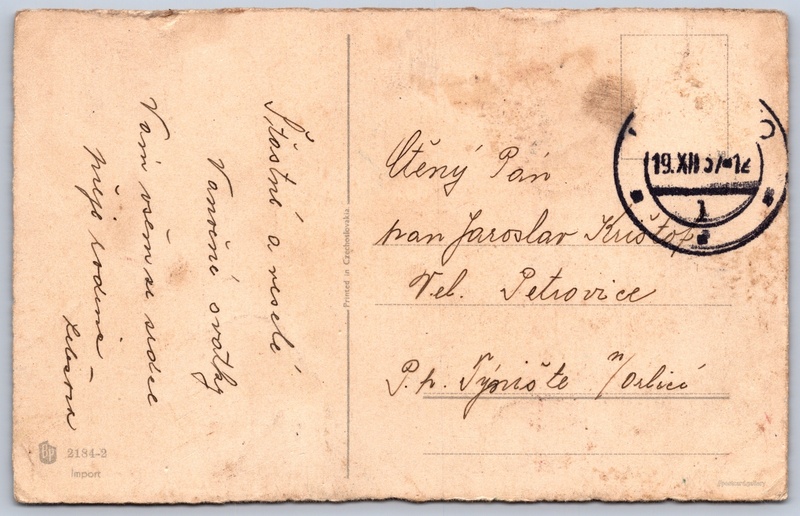 Šťastné a veselé
Vanoční svátky
Vám všem ze srdce
přeje rodina
Printed in Czechoslovakia
BP 2184-2
Import
19.XII 37-12
1
Ctěný Pán
pan Jaroslav Krištof
Vel. Petrovice
P.p. Týniště n/Orlicí